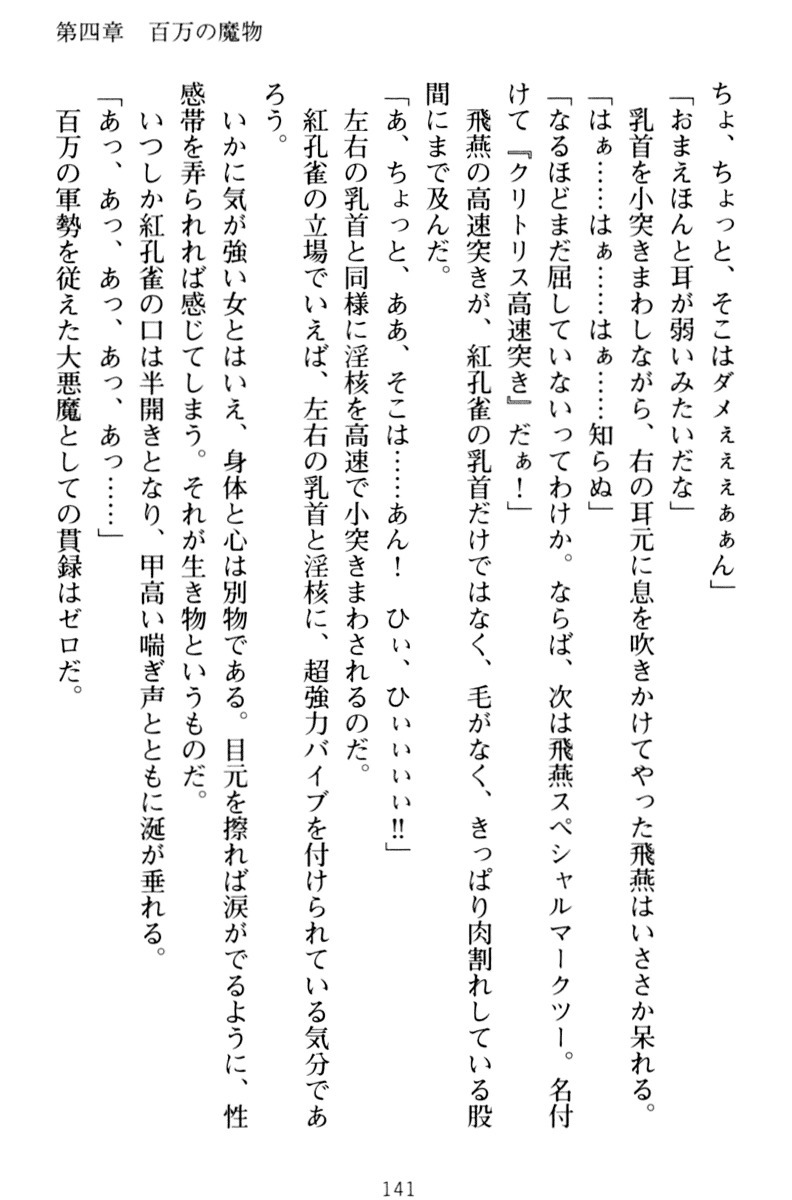 第四章　百万の魔物
ちょ、ちょっと、そこはダメぇぇぇぁぁん」
「おまえほんと耳が弱いみたいだな」
　乳首を小突きまわしながら、右の耳元に息を吹きかけてやった飛燕はいささか呆れる。
「はぁ……はぁ……はぁ……知らぬ」
「なるほどまだ屈していないってわけか。ならば、次は飛燕スペシャルマークツー。名付
けて『クリトリス高速突き』だぁ！」
　飛燕の高速突きが、紅孔雀の乳首だけではなく、毛がなく、きっぱり肉割れしている股
間にまで及んだ。
「あ、ちょっと、ああ、そこは……あん！　ひぃ、ひぃぃぃぃ‼」
　左右の乳首と同様に淫核を高速で小突きまわされるのだ。
　紅孔雀の立場でいえば、左右の乳首と淫核に、超強力バイブを付けられている気分であ
ろう。
　いかに気が強い女とはいえ、身体と心は別物である。目元を擦れば涙がでるように、性
感帯を弄られれば感じてしまう。それが生き物というものだ。
　いつしか紅孔雀の口は半開きとなり、甲高い喘ぎ声とともに涎が垂れる。
「あっ、あっ、あっ、あっ、あっ……」
　百万の軍勢を従えた大悪魔としての貫録はゼロだ。
141